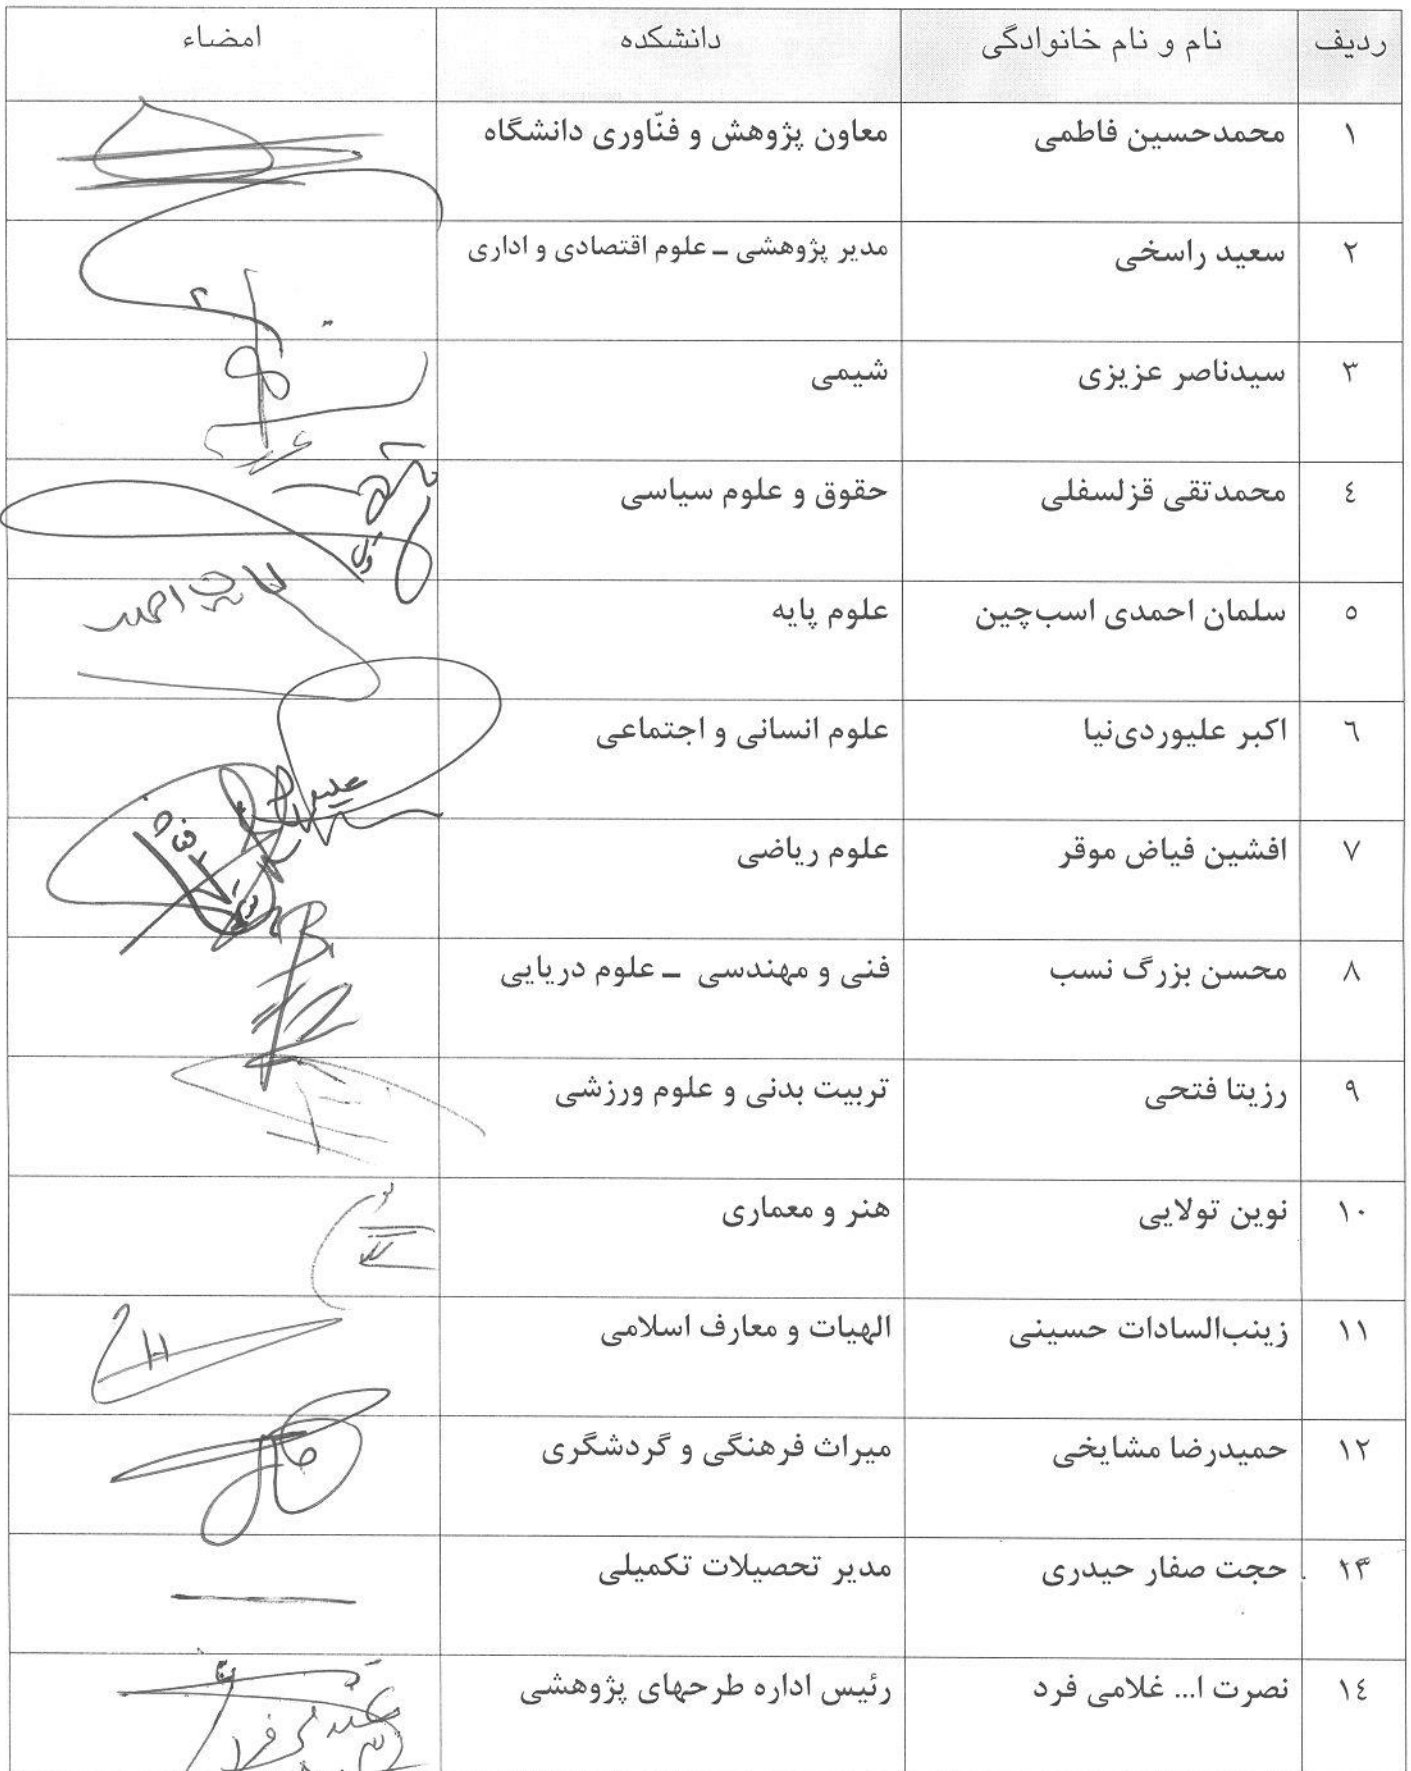 ردیف نام و نام خانوادگی دانشکده امضاء
١ محمدحسین فاطمی معاون پژوهش و فنّاوری دانشگاه
٢ سعید راسخی مدیر پژوهشی ــ علوم اقتصادی و اداری
٣ سیدناصر عزیزی شیمی
٤ محمدتقی قزلسفلی حقوق و علوم سیاسی
٥ سلمان احمدی اسب‌چین علوم پایه
٦ اکبر علیوردی‌نیا علوم انسانی و اجتماعی
٧ افشین فیاض موقر علوم ریاضی
٨ محسن بزرگ نسب فنی و مهندسی ــ علوم دریایی
٩ رزیتا فتحی تربیت بدنی و علوم ورزشی
١٠ نوین تولایی هنر و معماری
١١ زینب‌السادات حسینی الهیات و معارف اسلامی
١٢ حمیدرضا مشایخی میراث فرهنگی و گردشگری
١٣ حجت صفار حیدری مدیر تحصیلات تکمیلی
١٤ نصرت ا... غلامی فرد رئیس اداره طرحهای پژوهشی